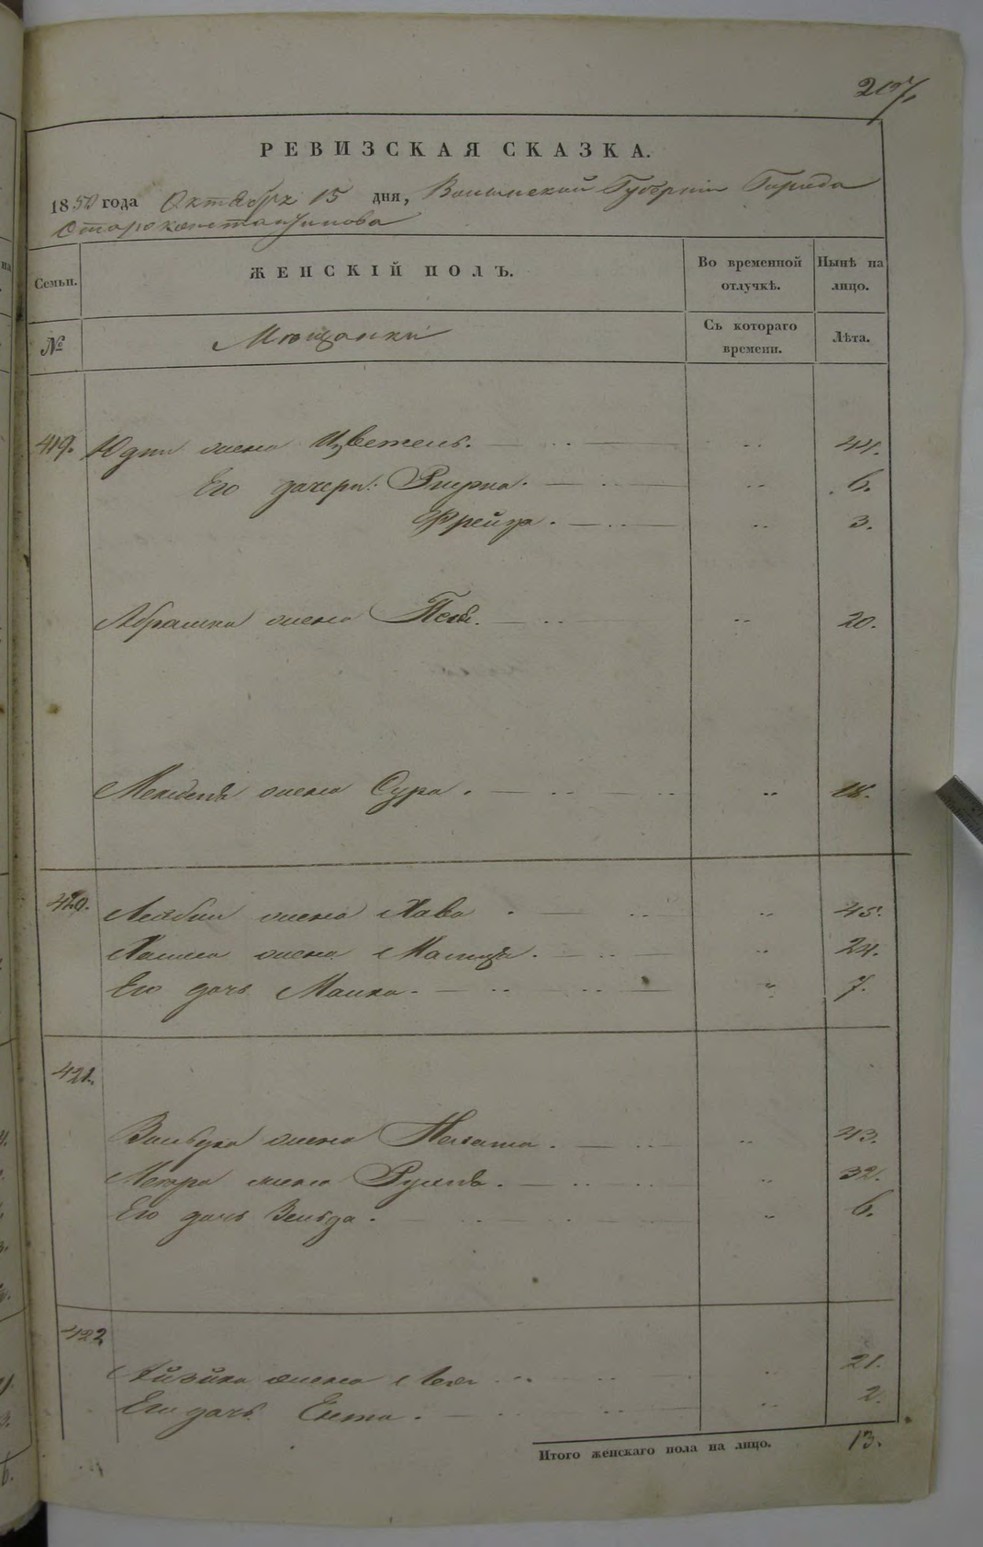 207.
РЕВИЗСКАЯ СКАЗКА.
1850 года Октября 15 дня, Волынской Губернии Города
Староконстантинова
Семьи. ЖЕНСКІЙ ПОЛЪ. Во временной отлучкѣ. Нынѣ на лицо.
№ Мещанки Съ котораго времени. Лѣта.
419. жена Цветель. 44.
Его дочери: Ривка. 6.
Фрейда. 3.
Абрамка жена Песя. 20.
жена Сура. 18.
420. Лейбы жена Хава 45.
жена 24.
Его дочь Малка. 7.
421.
жена 43.
жена 32.
Его дочь Зельда. 6.
422
жена Лея 21.
Его дочь Ента. 2.
Итого женскаго пола на лицо. 13.